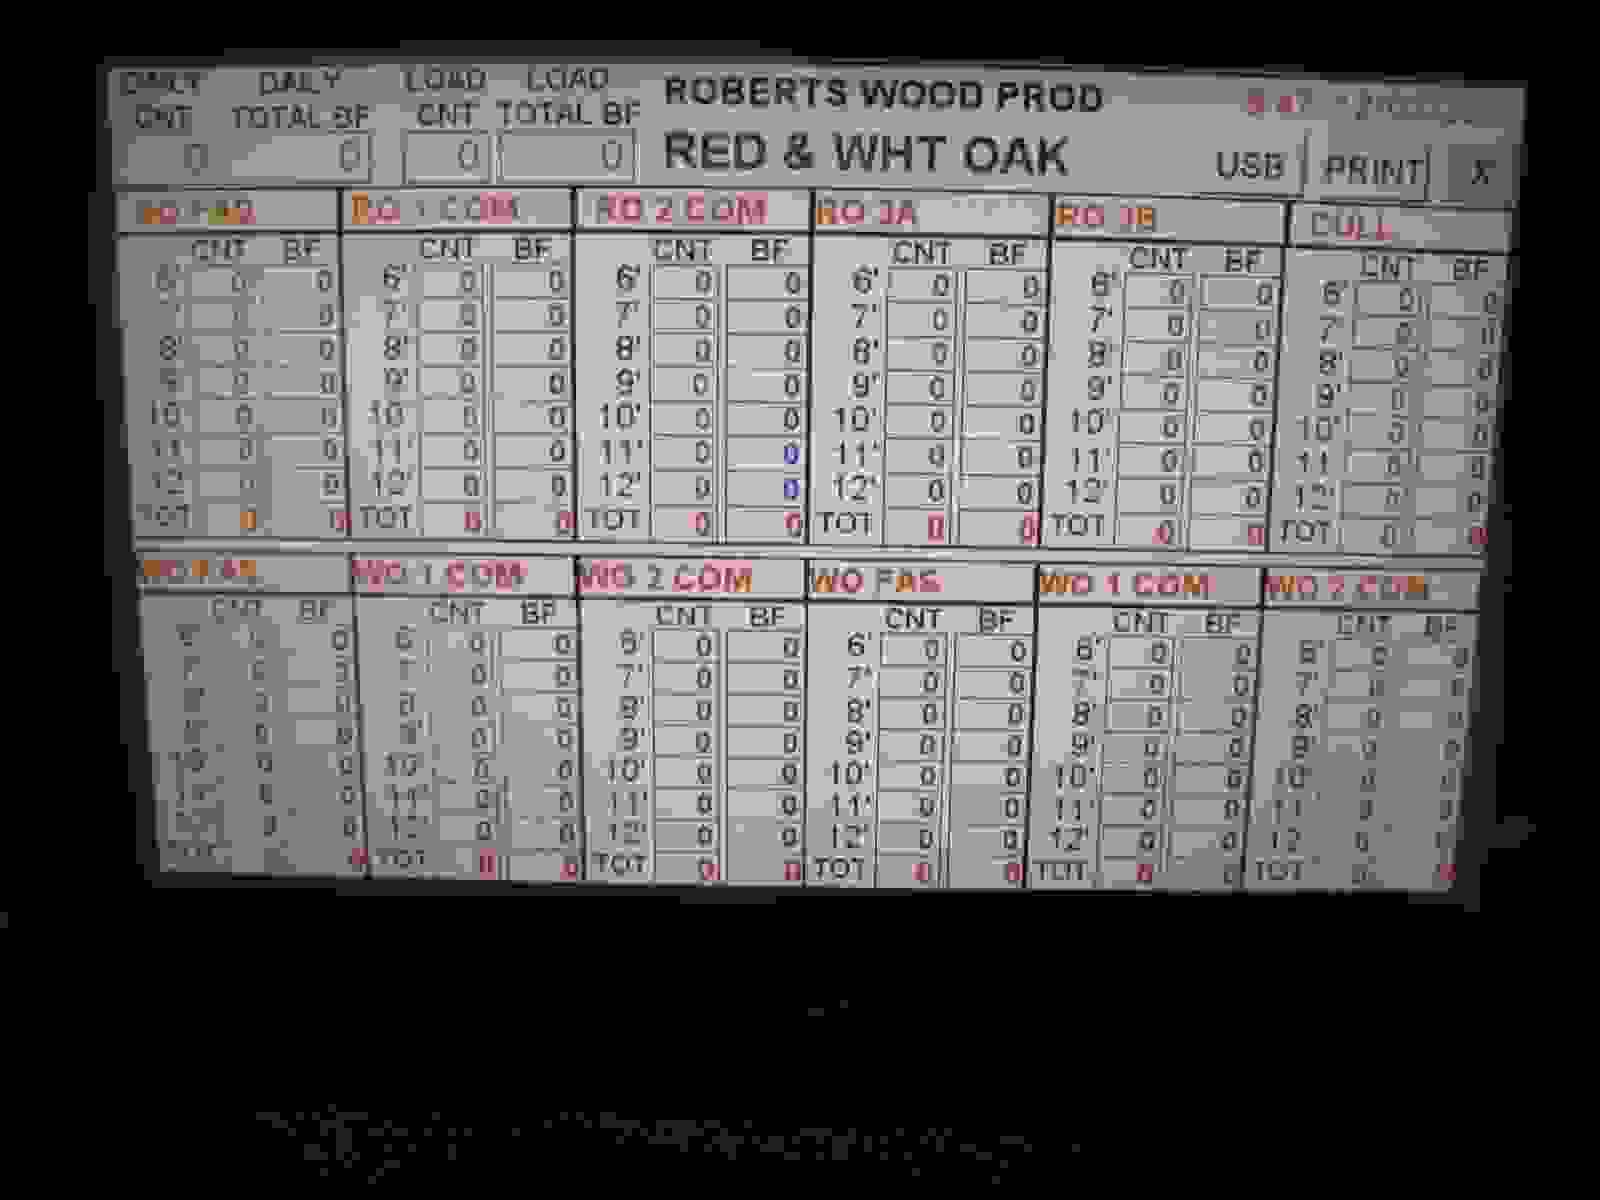 DAILY DAILY LOAD LOAD ROBERTS WOOD PROD
CNT TOTAL BF CNT TOTAL BF
0 0 0 0 RED & WHT OAK USB PRINT X
RO 1 COM RO 2 COM RO 3A RO 3B CULL
CNT BF CNT BF CNT BF CNT BF CNT BF CNT BF
6' 0 0 6' 0 0 6' 0 0 6' 0 0 6' 0 0 6' 0 0
0 7' 0 0 7' 0 0 7' 0 0 7' 0 0 7' 0 0
8' 0 0 8' 0 0 8' 0 0 8' 0 0 8' 0 0 8' 0 0
0 0 9' 0 0 9' 0 0 9' 0 0 9' 0 0 9' 0 0
10' 0 0 10' 0 0 10' 0 0 10' 0 0 10' 0 0 10' 0 0
11' 0 0 11' 0 0 11' 0 0 11' 0 0 11' 0 0 11' 0 0
12' 0 0 0 0 12' 0 0 12' 0 0 12' 0 0 12' 0 0
TOT 0 0 TOT 0 0 TOT 0 0 TOT 0 0 TOT 0 0 TOT 0 0
WO 1 COM WO 2 COM WO FAS WO 1 COM WO 2 COM
CNT BF CNT BF CNT BF CNT BF CNT BF CNT BF
6' 0 0 6' 0 0 6' 0 0 6' 0 0 6' 0 0 6' 0 0
7' 0 0 0 0 7' 0 0 7' 0 0 7' 0 0 7' 0 0
0 0 8' 0 0 8' 0 0 8' 0 0 8' 0 0 8' 0
0 0 9' 0 0 9' 0 0 9' 0 0 9' 0 0 9' 0 0
0 0 10' 0 0 10' 0 0 10' 0 0 10' 0 0 10' 0 0
0 0 11' 0 0 11' 0 0 11' 0 0 11' 0 0 11' 0 0
0 0 12' 0 0 12' 0 0 12' 0 0 12' 0 0 12 0
0 TOT 0 0 TOT 0 0 TOT 0 0 TOT 0 0 TOT 0 0